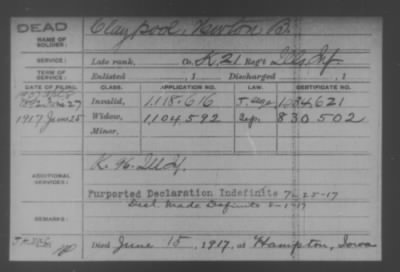 DEAD
NAME OF SOLDIER:
Claypool, Newton B.
SERVICE:
Late rank, Co. K, 21 Reg't Ills Inf.
TERM OF SERVICE:
Enlisted , 1 Discharged , 1
DATE OF FILING. CLASS. APPLICATION NO. LAW. CERTIFICATE NO.
27 Invalid, 1,118,616
1917 June 25 Widow, 1,104,592 830,502
Minor,
ADDITIONAL SERVICES:
K.
Purported Declaration Indefinite 7-25-17
Decl. Made Definite
REMARKS:
Died June 15, 1917, at Hampton, Iowa